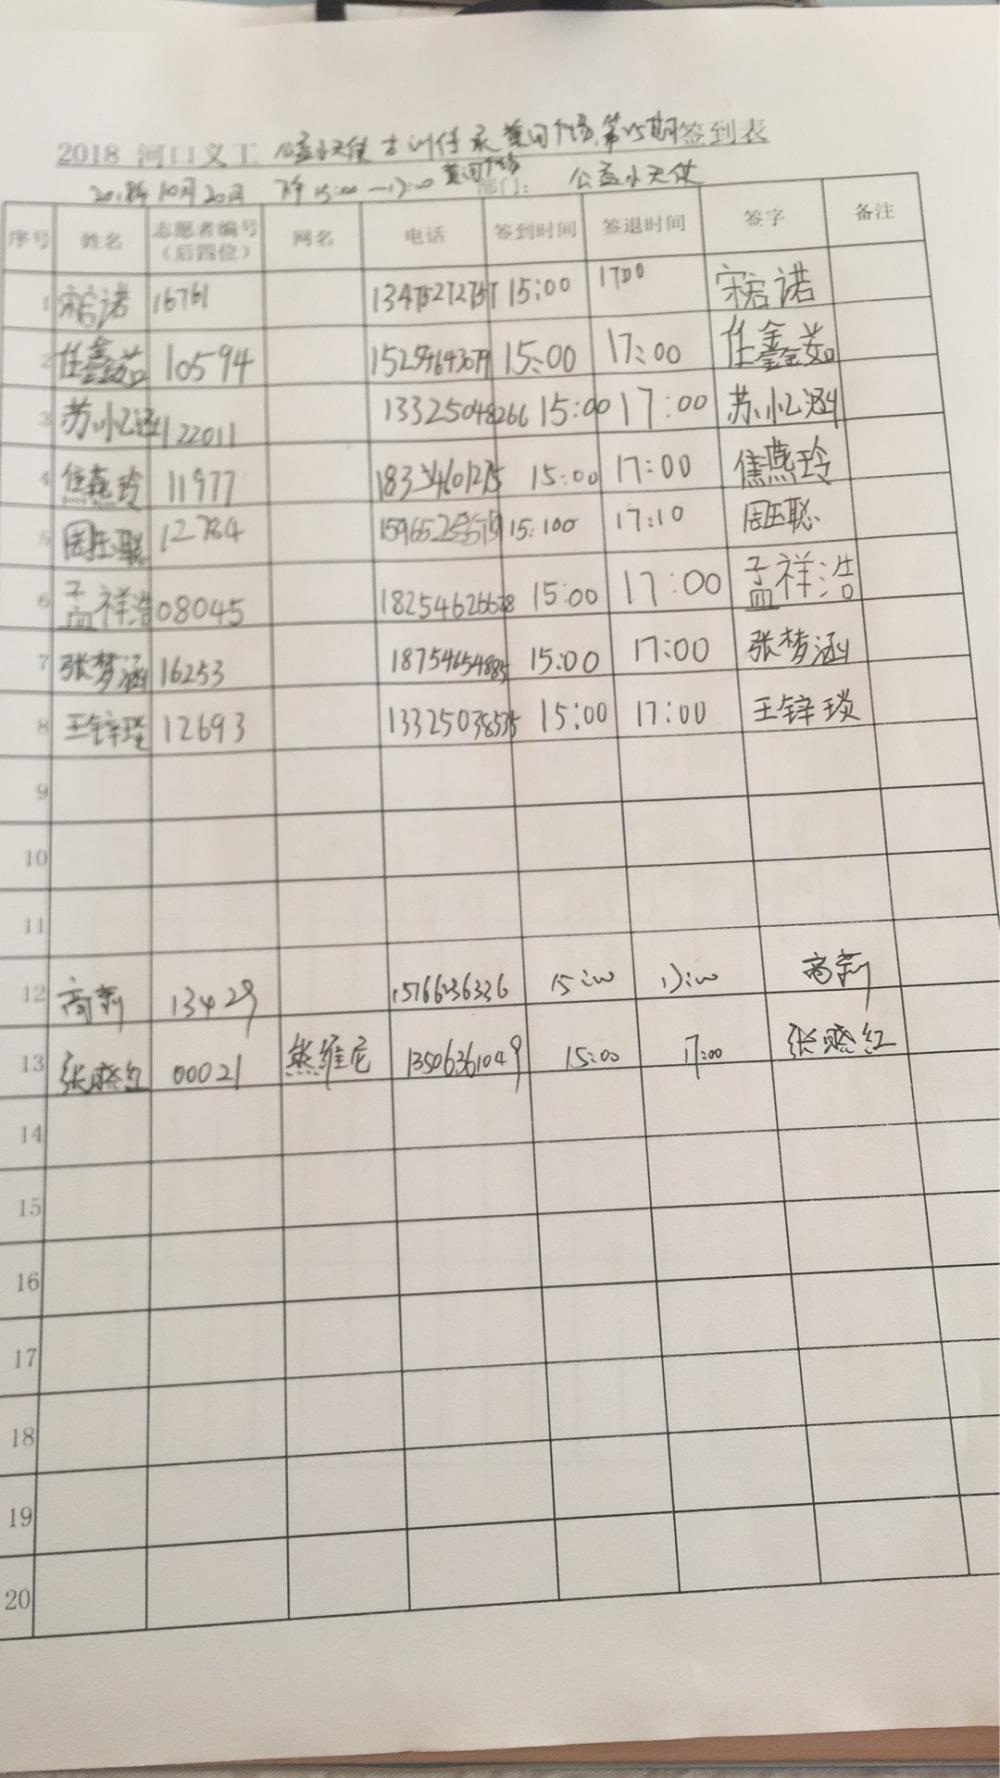 2018 河口义工 公益小天使 古训传承 黄河广场 第15期签到表
2018年10月20日 下午15:00—17:00 黄河广场 部门: 公益小天使
序号 姓名 志愿者编号(后四位) 网名 电话 签到时间 签退时间 签字 备注
1 宋宕诺 16761 15:00 1700 宋宕诺
2 任鑫茹 10594 15:00 17:00 任鑫茹
3 苏小忆涵 122011 13325048266 15:00 17:00 苏小忆涵
4 焦燕玲 11977 15:00 17:00 焦燕玲
5 周珏聪 12784 15:100 17:10 周珏聪
6 孟祥浩 08045 15:00 17:00 孟祥浩
7 张梦涵 16253 18754654885 15:00 17:00 张梦涵
8 王锌琰 12693 13325038535 15:00 17:00 王锌琰
9
10
11
12 高莉 13429 15766236336 15:00 17:00 高莉
13 张晓红 00021 熊维尼 13506361049 15:00 17:00 张晓红
14
15
16
17
18
19
20